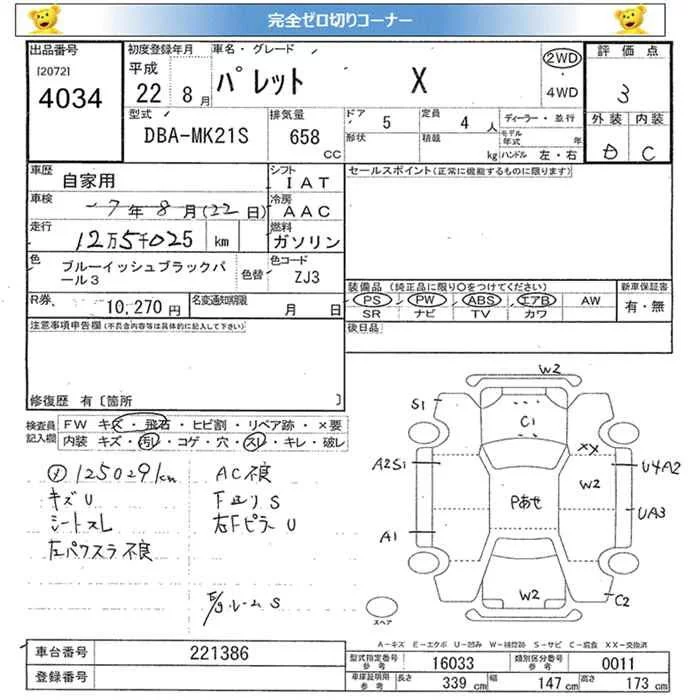 完全ゼロ切りコーナー
出品番号
[2072]
4034
初度登録年月
平成
22 8月
車名・グレード
パレット X
2WD
・
4WD
評価点
3
外装 内装
D C
型式
DBA-MK21S
排気量
658
CC
ドア
5
定員
4 人
形状
積載
kg
ディーラー・並行
モデル年式 年
ハンドル 左・右
車歴
自家用
シフト
I AT
車検
7年8月(22日)
冷房
AAC
走行
12万5千025 km
燃料
ガソリン
色
ブルーイッシュブラックパール3
色替
色コード
ZJ3
R券
10,270円
名変通知期限
月 日
セールスポイント(正常に機能するものに限ります)
装備品 (純正品に限り○をつけてください)
PS・PW・ABS・エアB・AW
SR ナビ TV カワ
新車保証書
有・無
後日品
注意事項申告欄(不具合内容等は具体的に記入して下さい)
修復歴 有〔箇所 〕
検査員記入欄
FW キズ・飛石・ヒビ割・リペア跡・×要
内装 キズ・汚レ・コゲ・穴・スレ・キレ・破レ
メ 125029km
キズU
シートスレ
左パワスラ不良
AC不良
下廻りS
右FピラーU
E/gルームS
W2
S1
C1
XX
A2S1
U4A2
W2
Pあせ
UA3
A1
W2
C2
スペア
A-キズ E-エクボ U-凹み W-補修跡 S-サビ C-腐食 XX-交換済
車台番号
221386
登録番号
型式指定番号
参考
16033
類別区分番号
参考
0011
車庫証明用
参考
長さ
339cm
幅
147cm
高さ
173cm